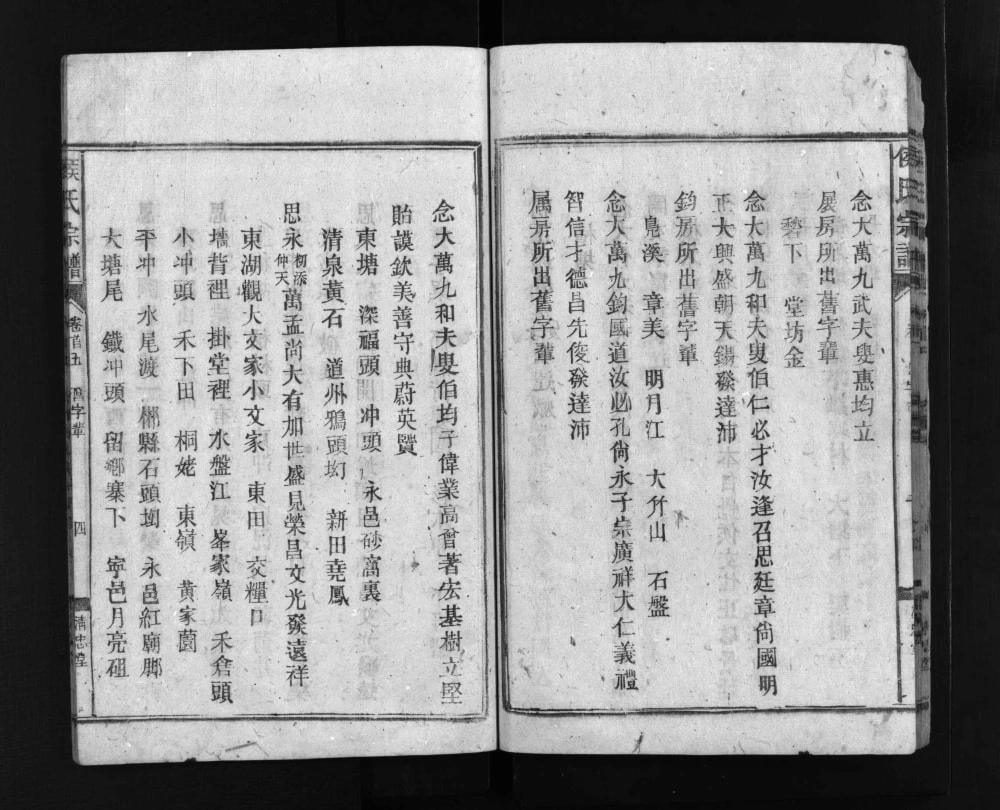 侯氏宗譜
念大萬九武夫叟惠均立
展房所出舊字輩
磬下　堂坊金
念大萬九和夫叟伯仁必才汝逢召思廷章尙國明
正大興盛朝天錫發達沛
鈞房所出舊字輩
鳧溪　章美　明月江　大竹山　石盤
念大萬九鈞國道汝必孔尙永子宗廣祥大仁義禮
智信才德昌先俊發達沛
属房所出舊字輩
念大萬九和夫叟伯均子偉業高曾著宏基樹立堅
貽謨欽美善守典蔚英賢
東塘　深福頭　冲頭　永邑砂富裏
清泉黃石　道州鴉頭㘭　新田堯鳳
思永初添仲天萬孟尚大有加世盛見榮昌文光發遠祥
東湖觀大文家小文家　東田　交糧口
墻背裡　掛堂裡　水盤江　峯家嶺　禾倉頭
小冲頭　禾下田　桐姥　東嶺　黄家園
平冲　水尾渡　郴縣石頭㘭　永邑紅廟脚
大塘尾　鐵冲頭　留鄉寨下　寧邑月亮砠
侯氏宗譜　卷首五　舊字輩　四　清志堂